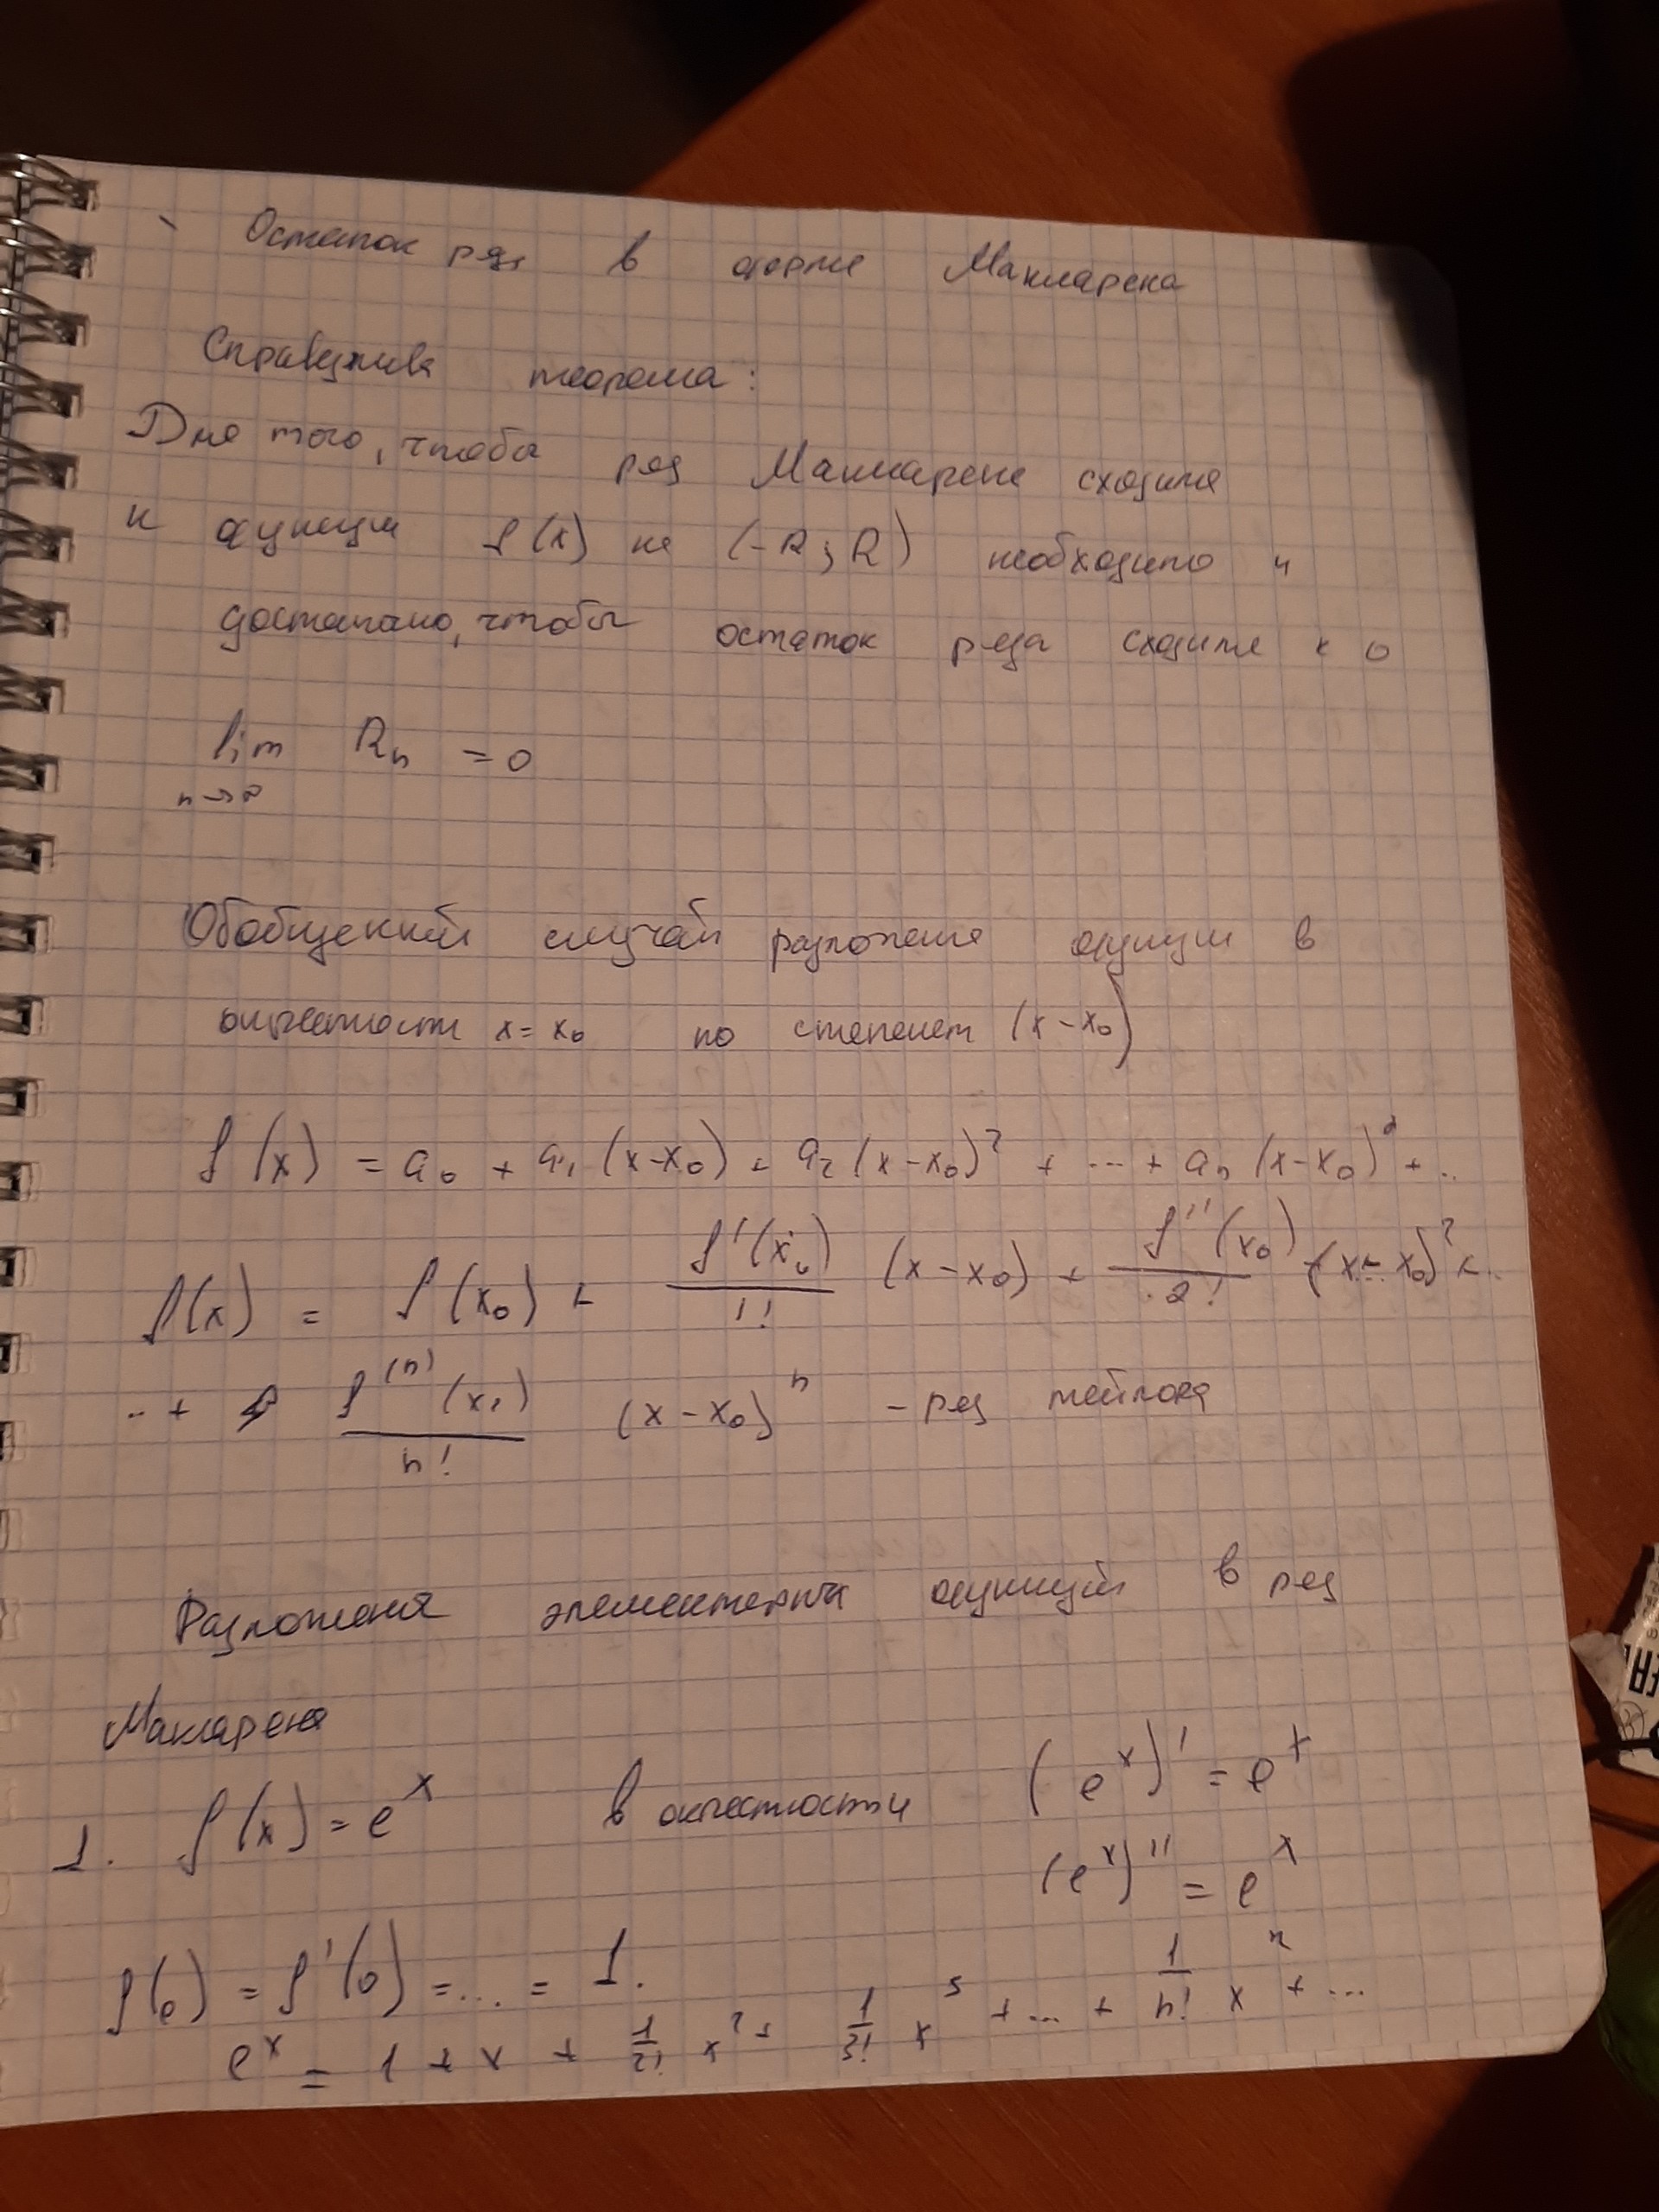 Остаток ряд в форме Макларена
Справедлива теорема:
Для того, чтобы ряд Макларена сходился
к функции f(x) на (-R; R) необходимо и
достаточно, чтобы остаток ряда сходился к 0
lim Rn = 0
n→∞
Обобщенный случай разложения функции в
окрестности x = x₀ по степеням (x - x₀)
f(x) = a₀ + a₁(x-x₀) + a₂(x-x₀)² + ... + aₙ(x-x₀)ⁿ + ..
f(x) = f(x₀) + f'(x₀)/1! (x-x₀) + f''(x₀)/2! (x-x₀)² + ..
.. + f⁽ⁿ⁾(x₀)/n! (x-x₀)ⁿ - ряд тейлора
Разложения элементарных функций в ряд
Макларена
1. f(x) = eˣ в окрестности (eˣ)' = eˣ
(eˣ)'' = eˣ
f(0) = f'(0) = ... = 1.
eˣ = 1 + x + 1/2! x² + 1/3! x³ + ... + 1/n! xⁿ + ...